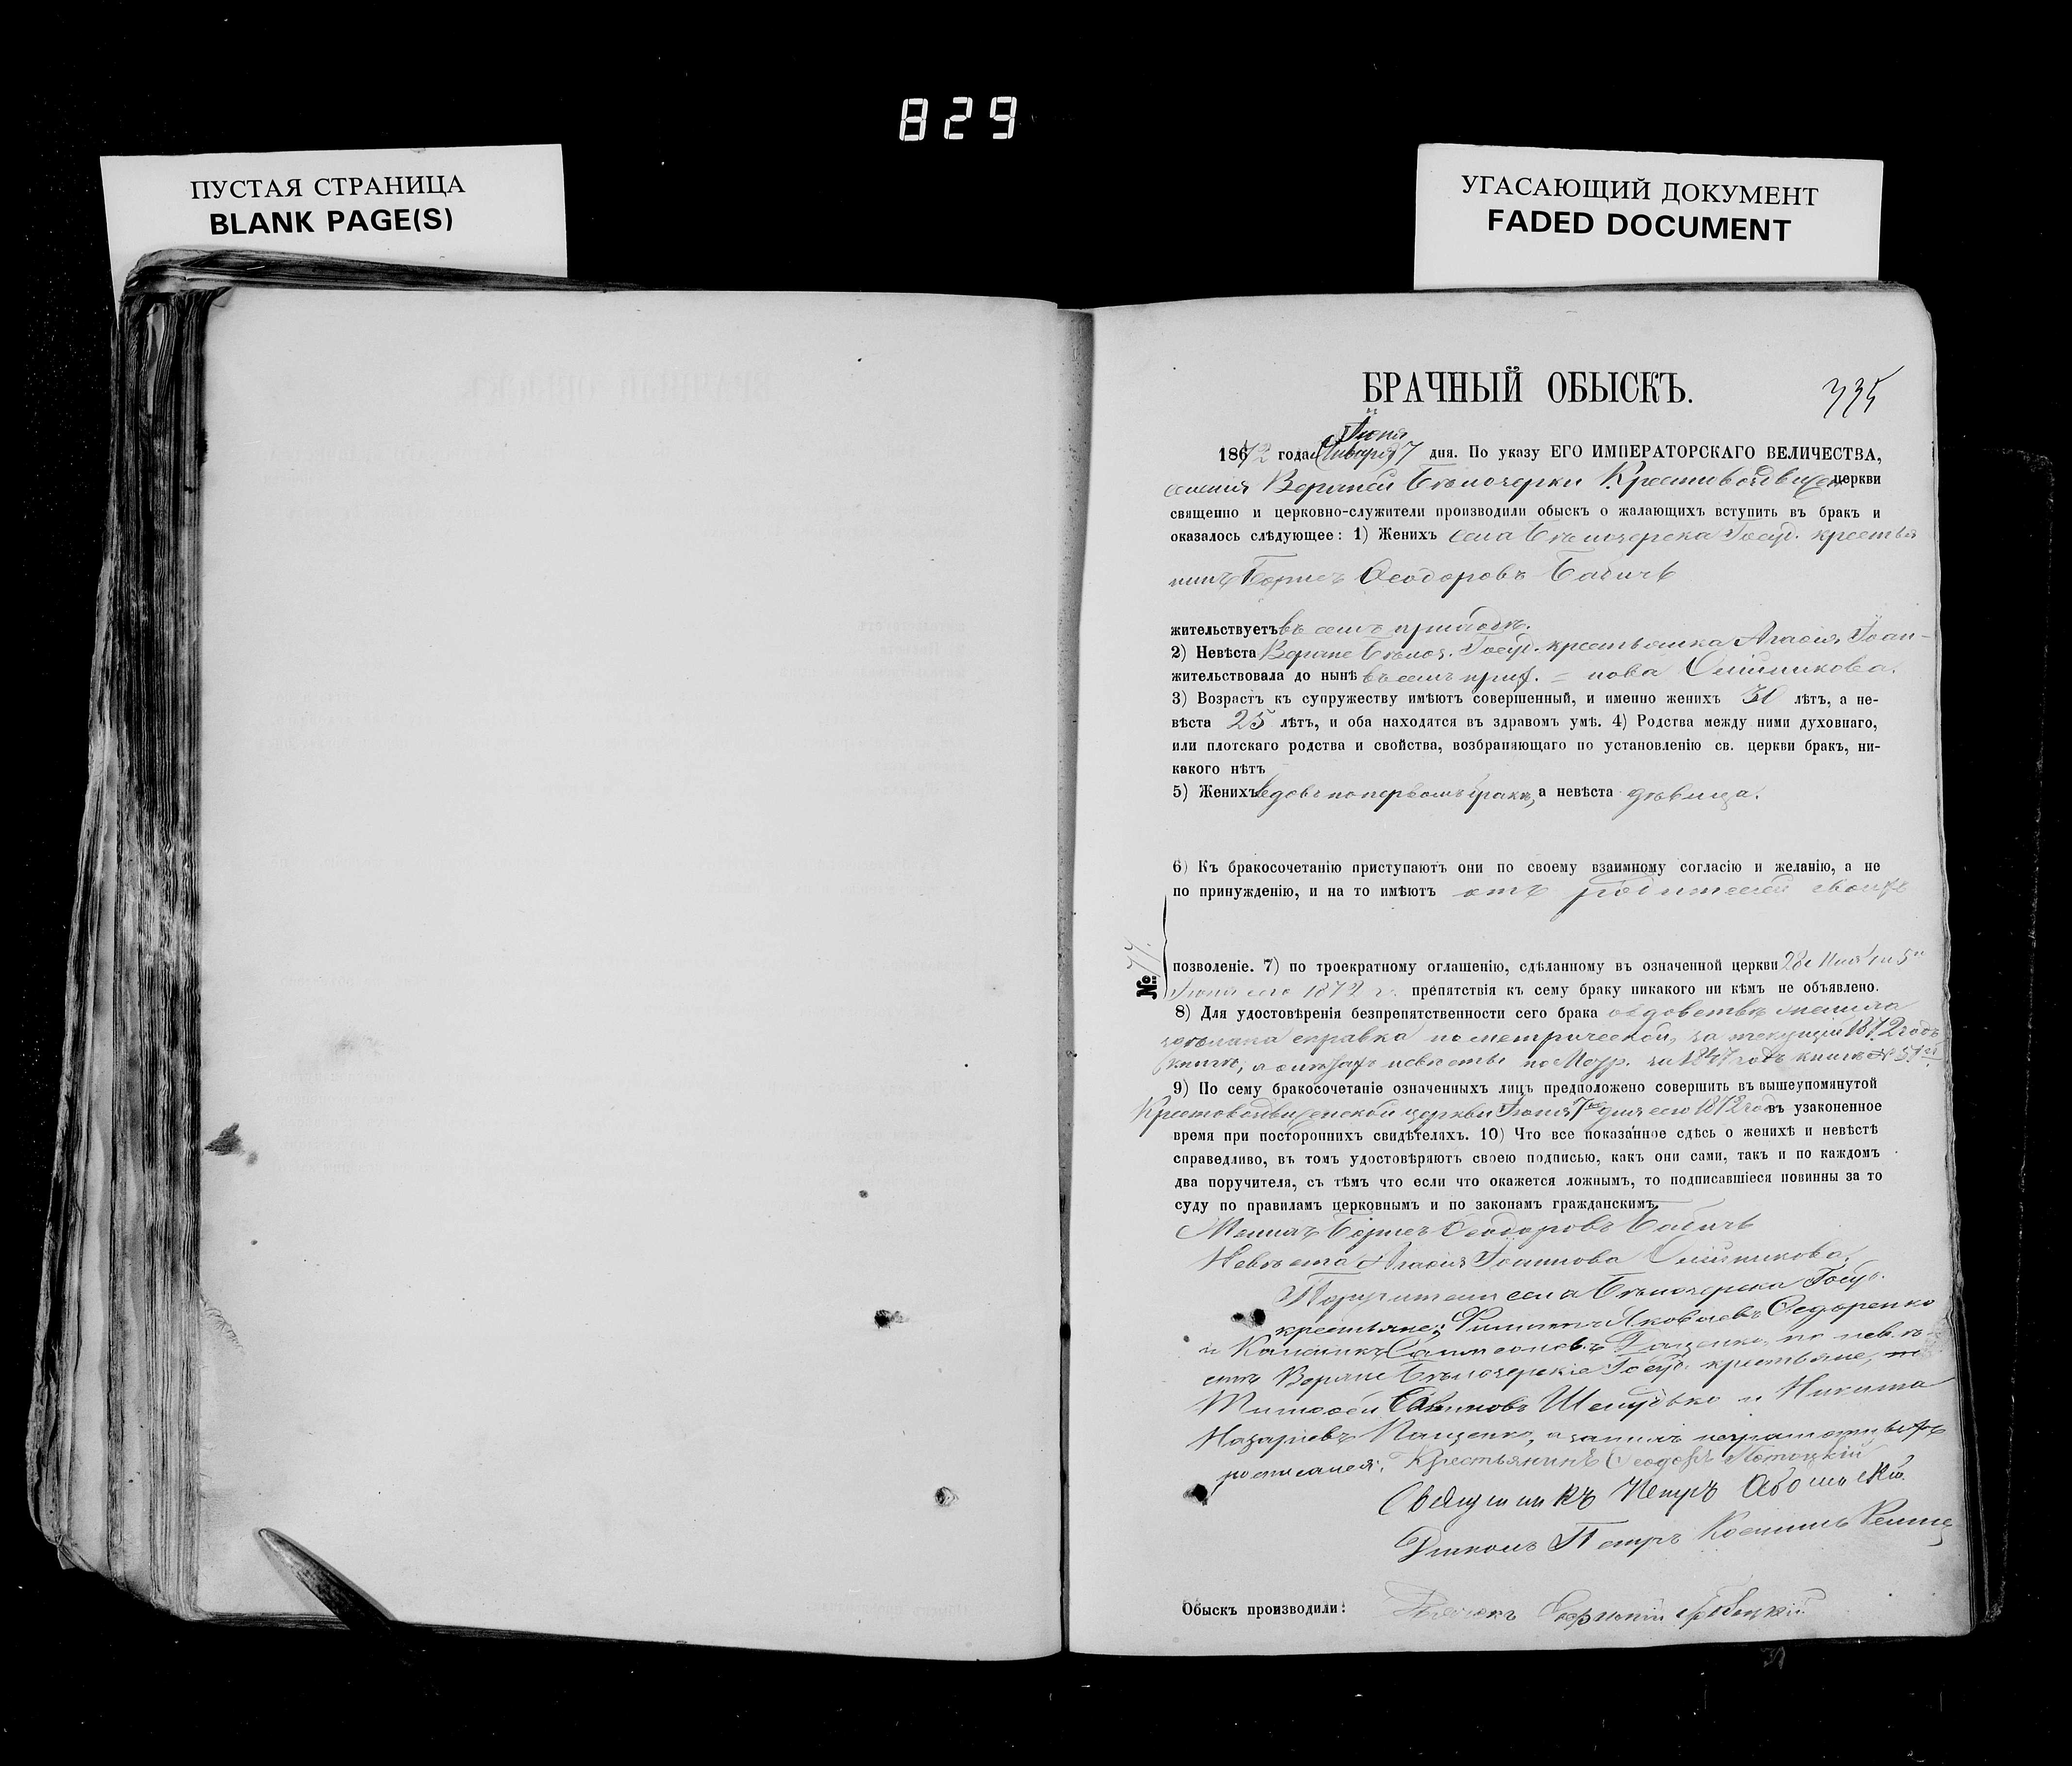 829
ПУСТАЯ СТРАНИЦА
BLANK PAGE(S)
УГАСАЮЩИЙ ДОКУМЕНТ
FADED DOCUMENT
БРАЧНЫЙ ОБЫСКЪ.
335
Іюня
1872 года 7 дня. По указу ЕГО ИМПЕРАТОРСКАГО ВЕЛИЧЕСТВА,
церкви
священно и церковно-служители производили обыскъ о жалающихъ вступить въ бракъ и
оказалось слѣдующее: 1) Женихъ села Бѣлозерска Госуд. крестья
нинъ Борисъ Ѳеодоровъ Бабичъ
жительствуетъ въ семъ приходѣ.
2) Невѣста Верхне Бѣлоз. Госуд. крестьянка Агаѳія Іоан-
жительствовала до нынѣ въ семъ прих. = нова Олійникова.
3) Возрастъ къ супружеству имѣютъ совершенный, и именно женихъ 30 лѣтъ, а не-
вѣста 25 лѣтъ, и оба находятся въ здравомъ умѣ. 4) Родства между ними духовнаго,
или плотскаго родства и свойства, возбраняющаго по установленію св. церкви бракъ, ни-
какого нѣтъ
5) Женихъ вдовъ по первомъ бракѣ, а невѣста дѣвица.
6) Къ бракосочетанію приступаютъ они по своему взаимному согласію и желанію, а не
по принужденію, и на то имѣютъ отъ родителей своихъ
№ 77.
позволеніе. 7) по троекратному оглашенію, сдѣланному въ означенной церкви 28 Мая и 5
Іюня сего 1872 г. препятствія къ сему браку никакого ни кѣмъ не объявлено.
8) Для удостовѣренія безпрепятственности сего брака о вдовствѣ жениха
сдѣлана справка по метрической, за текущій 1872 годъ
книгѣ, а о лѣтахъ невѣсты по за 1847 годъ книгѣ №
9) По сему бракосочетаніе означенныхъ лицъ предположено совершить въ вышеупомянутой
Крестовоздвиженской церкви Іюня 7 дня сего 1872 года въ узаконенное
время при постороннихъ свидѣтеляхъ. 10) Что все показанное сдѣсь о женихѣ и невѣстѣ
справедливо, въ томъ удостовѣряютъ своею подписью, какъ они сами, такъ и по каждомъ
два поручителя, съ тѣмъ что если что окажется ложнымъ, то подписавшіеся повинны за то
суду по правиламъ церковнымъ и по законамъ гражданскимъ.
Женихъ Борисъ Ѳеодоровъ Бабичъ
Невѣста Агаѳія Іоаннова Олійникова,
Поручители села Бѣлозерска Госуд.
крестьяне: Филиппъ Яковлевъ Ѳедоренко
и по невѣ
стѣ Верхне Бѣлозерскіе Госуд. крестьяне,
Тимоѳей Шелудько и Никита
Назаріевъ Пащенко, а за нихъ неграмотныхъ
росписался: Крестьянинъ Ѳеодоръ
Священникъ Петръ
Діаконъ Петръ
Обыскъ производили: